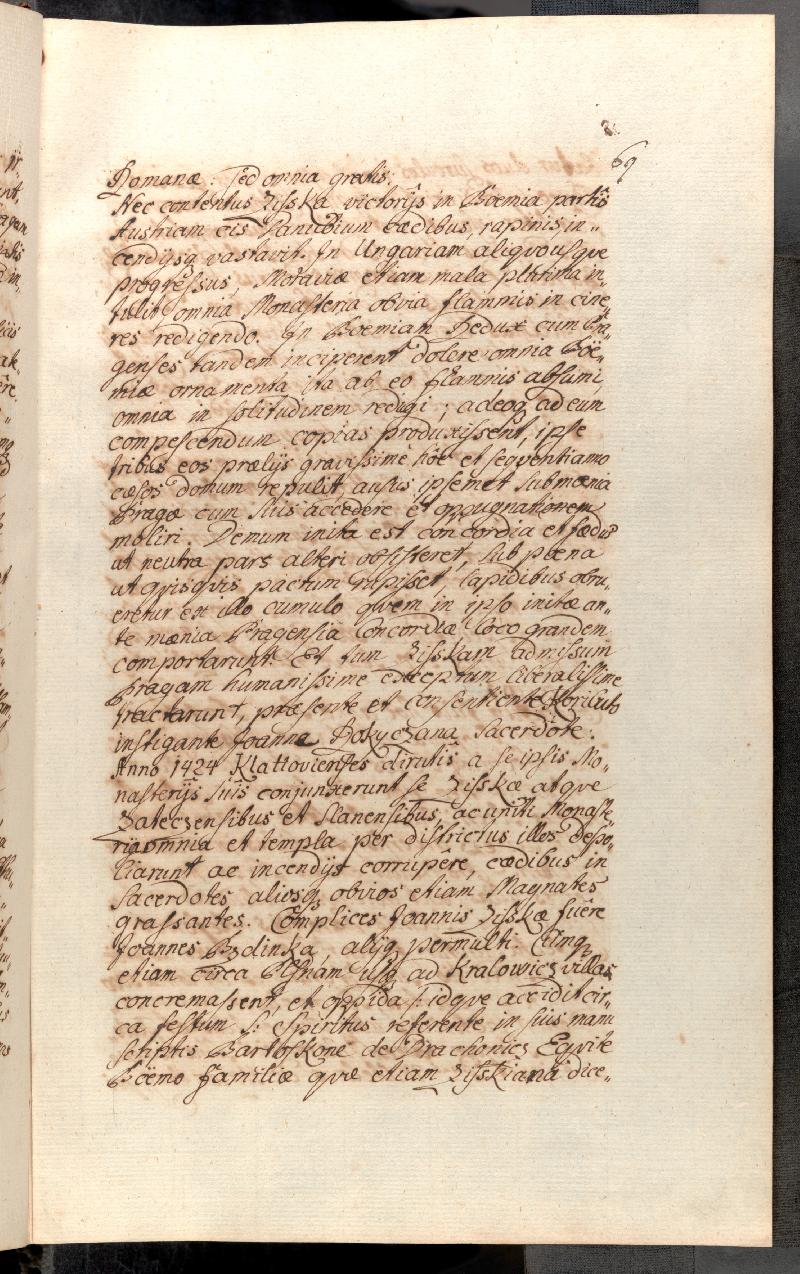 69
Romanæ. Sed omnia gratis.
Nec contentus Zisska victorijs in Boemia partis
Austriam cis Danubium cædibus, rapinis in„
cendijsq vastavit. In Ungariam aliqvousqve
progressus, Moraviæ etiam mala plurima in„
tulit omnia Monasteria obvia flammis in cine„
res redigendo. In Boemiam Redux cum Pra„
genses tandem inciperent dolere omnia Böe„
miæ ornamenta ita ab eo flamnis absumi
omnia in solitudinem redigi; adeoq ad eum
compescendum copias produxissent, ipse
tribus eos prælijs gravissime hoc et seqventi anno
cæsos domum repulit, ausus ipsemet sub mænia
Pragæ cum suis accedere et oppugnationem
moliri. Demum inita est concordia et fædus
ut neutra pars alteri obsisteret, sub pœna
ut qvisqvis pactum rupisset, lapidibus obru„
eretur ex illo cumulo qvem in ipso initæ an„
te mænia Pragensia Concordiæ loco grandem
comportarunt. Et tum Zisskam admissum
Pragam humanissime exceptum liberalissime
tractarunt, præsente et consentiente
instigante Joanne Rokyczana Sacerdote.
Anno 1424 Klattovienses dirutis a se ipsis Mo„
nasterijs suis conjunxerunt se Zisskæ atqve
Zateczensibus et Slanensibus, ac uniti Monaste„
ria omnia et templa per districtus illos despo„
liarunt ac incendijs corrupere, cædibus in
Sacerdotes aliosq obvios etiam Magnates
grassantes. Complices Joannis Zisskæ fuêre
Joannes Bzdinka, alijq permulti. Cumq
etiam circa Pilsnam usq ad Kralowicz villas
concremassent, et oppida /: idqve accidit cir„
ca festum S: Spiritus referente in suis manu
scriptis Bartosskone de Drachonicz Eqvite
Böemo familiæ qvæ etiam Zisskiana dice„